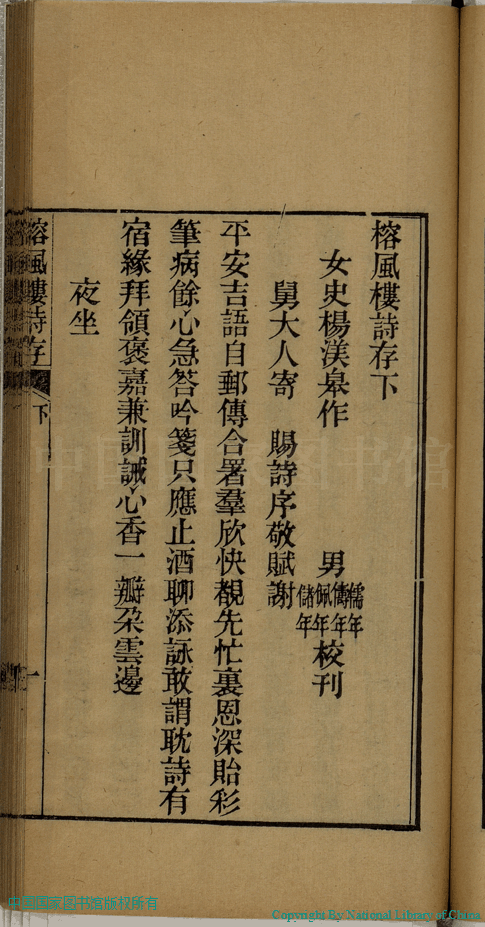 榕風樓詩存下
女史楊渼皋作 男儒年傳年佩年儲年校刊
舅大人寄 賜詩序敬賦謝
平安吉語自郵傳合署羣欣快覩先忙裏恩深貽彩
筆病餘心急答吟箋只應止酒聊添詠敢謂耽詩有
宿緣拜領褒嘉兼訓誡心香一瓣朵雲邊
夜坐
榕風樓詩存 下 一
中国国家图书馆版权所有
Copyright By National Library of China